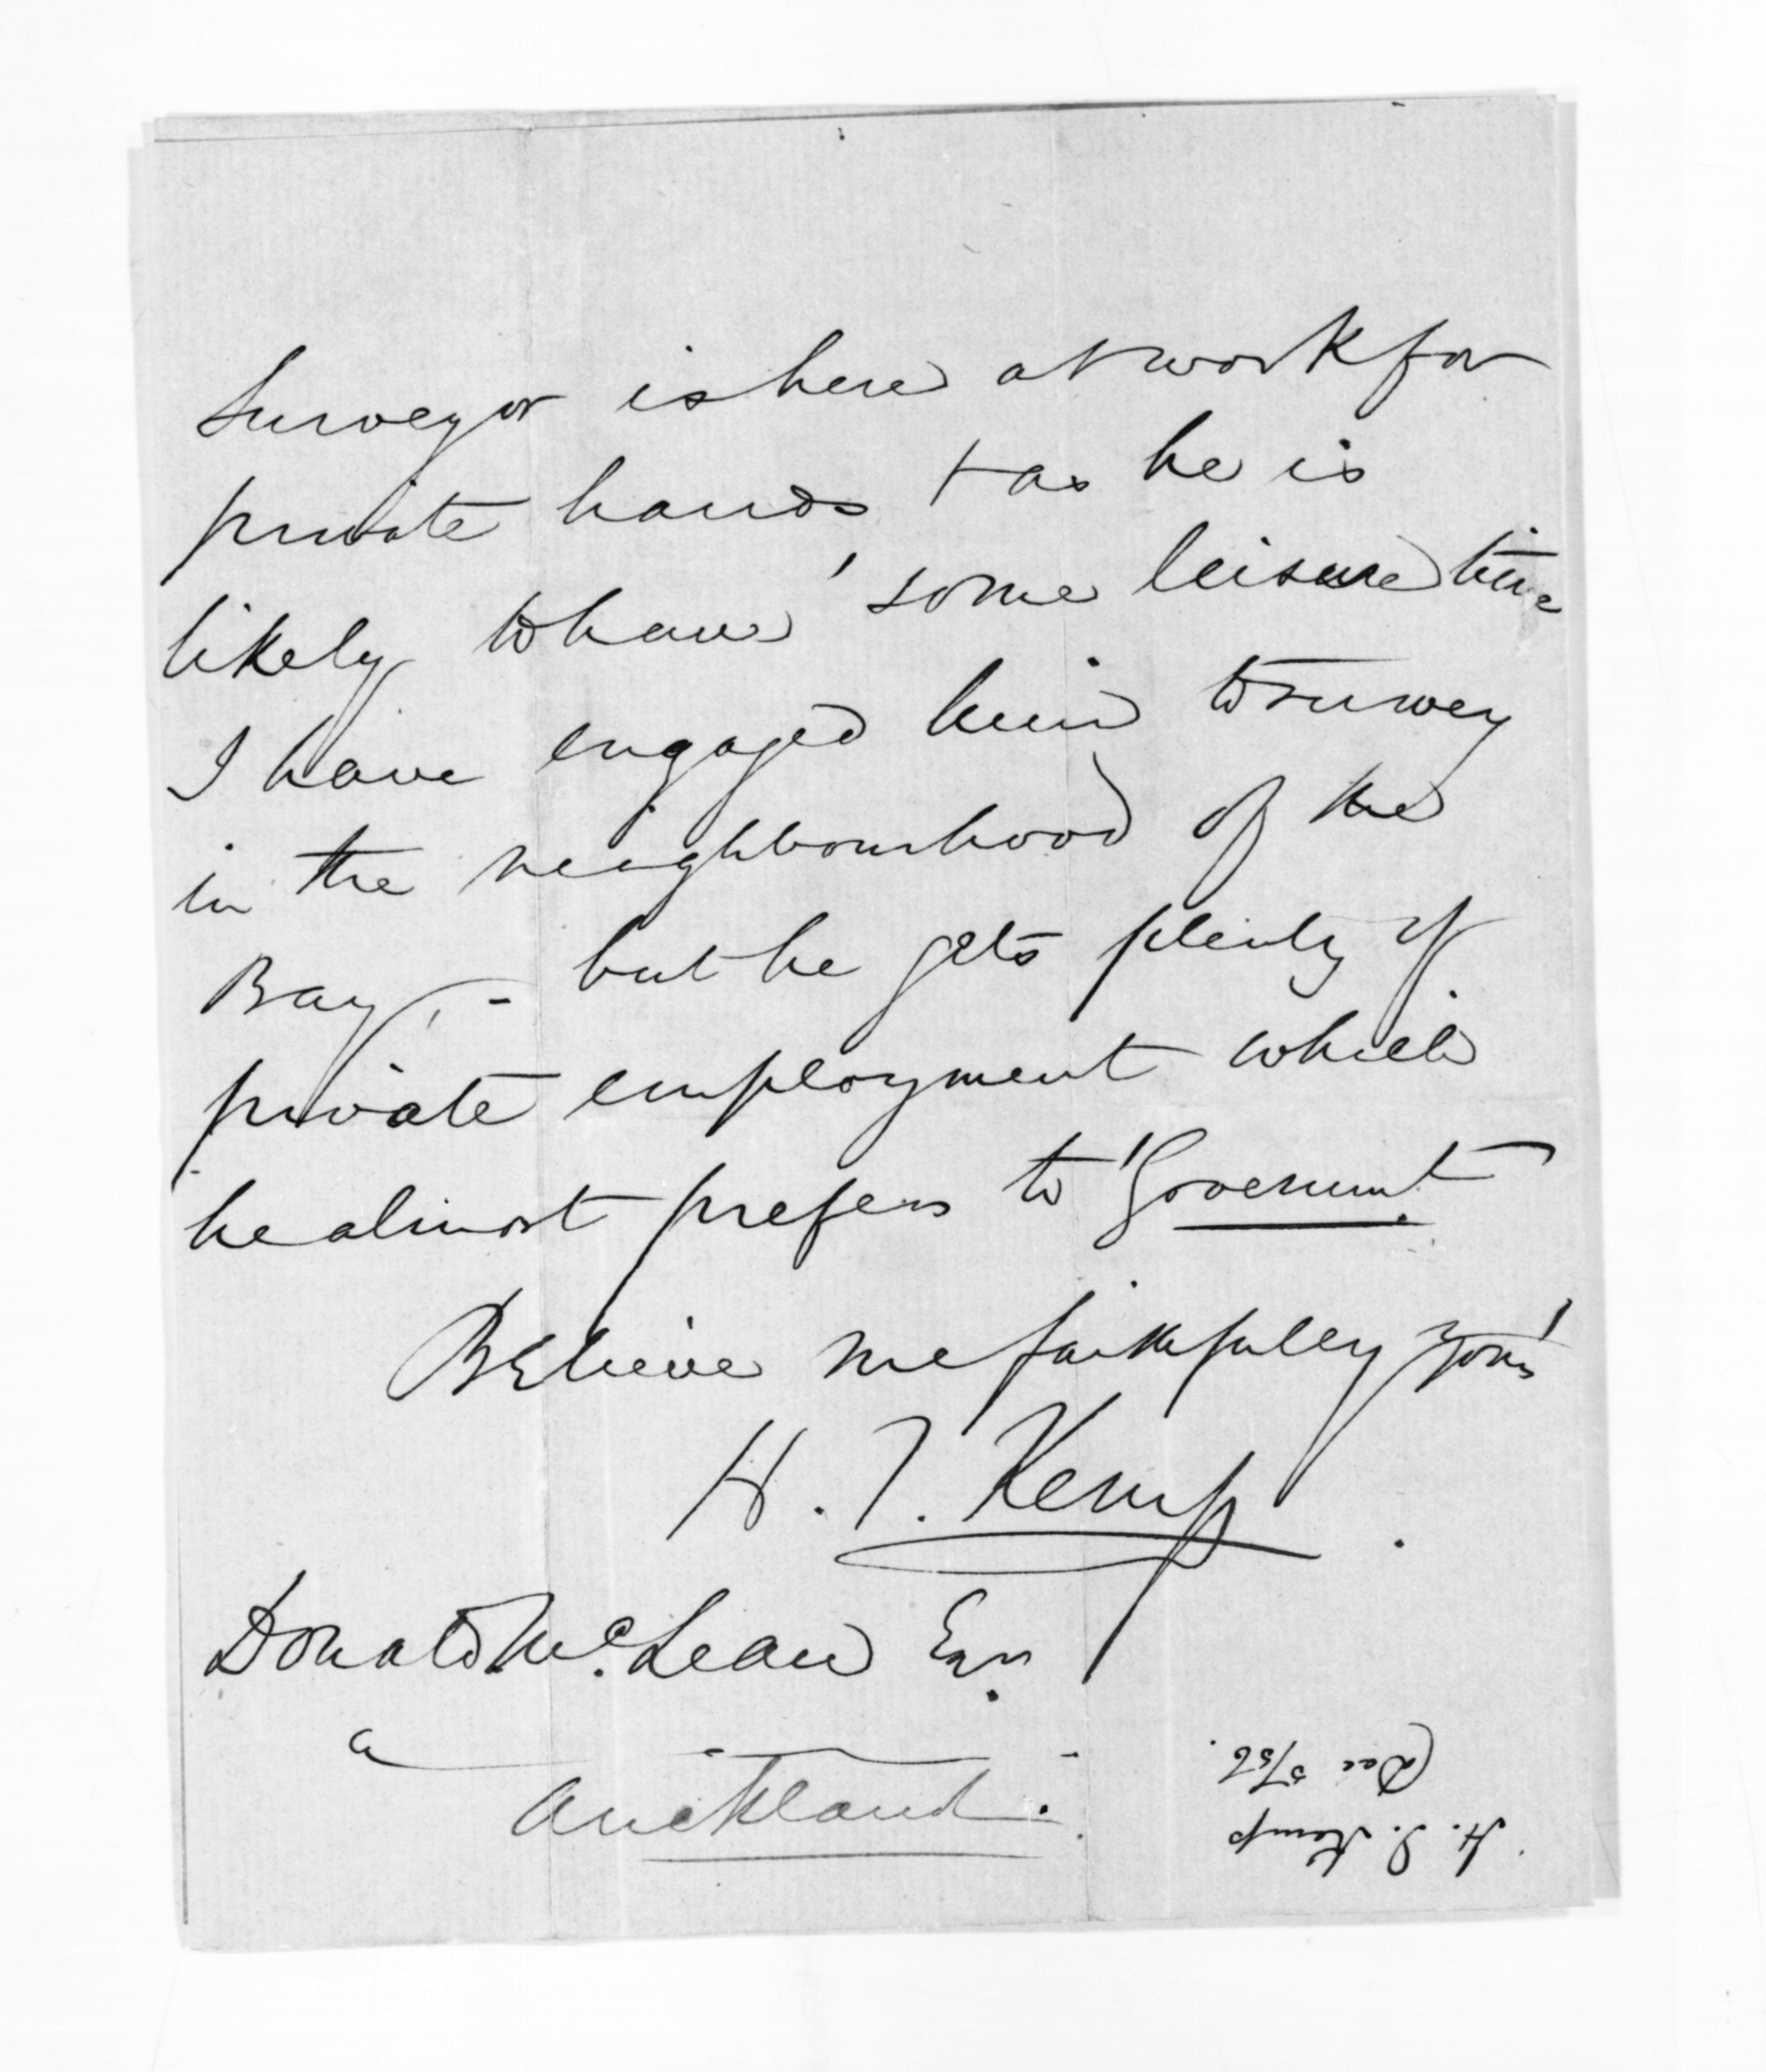 Surveyor is here at work for
private hands + as he is
likely to have some leisure time
I have engaged him to survey
in the neighbourhood of the
Bay, - but he gets plenty of
private employment which
he almost prefers to Government
Believe me faithfully yours
H. T. Kemp.
Donald McLean Esqr.
Auckland.
H. T. Kemp
(Dec 5/56.